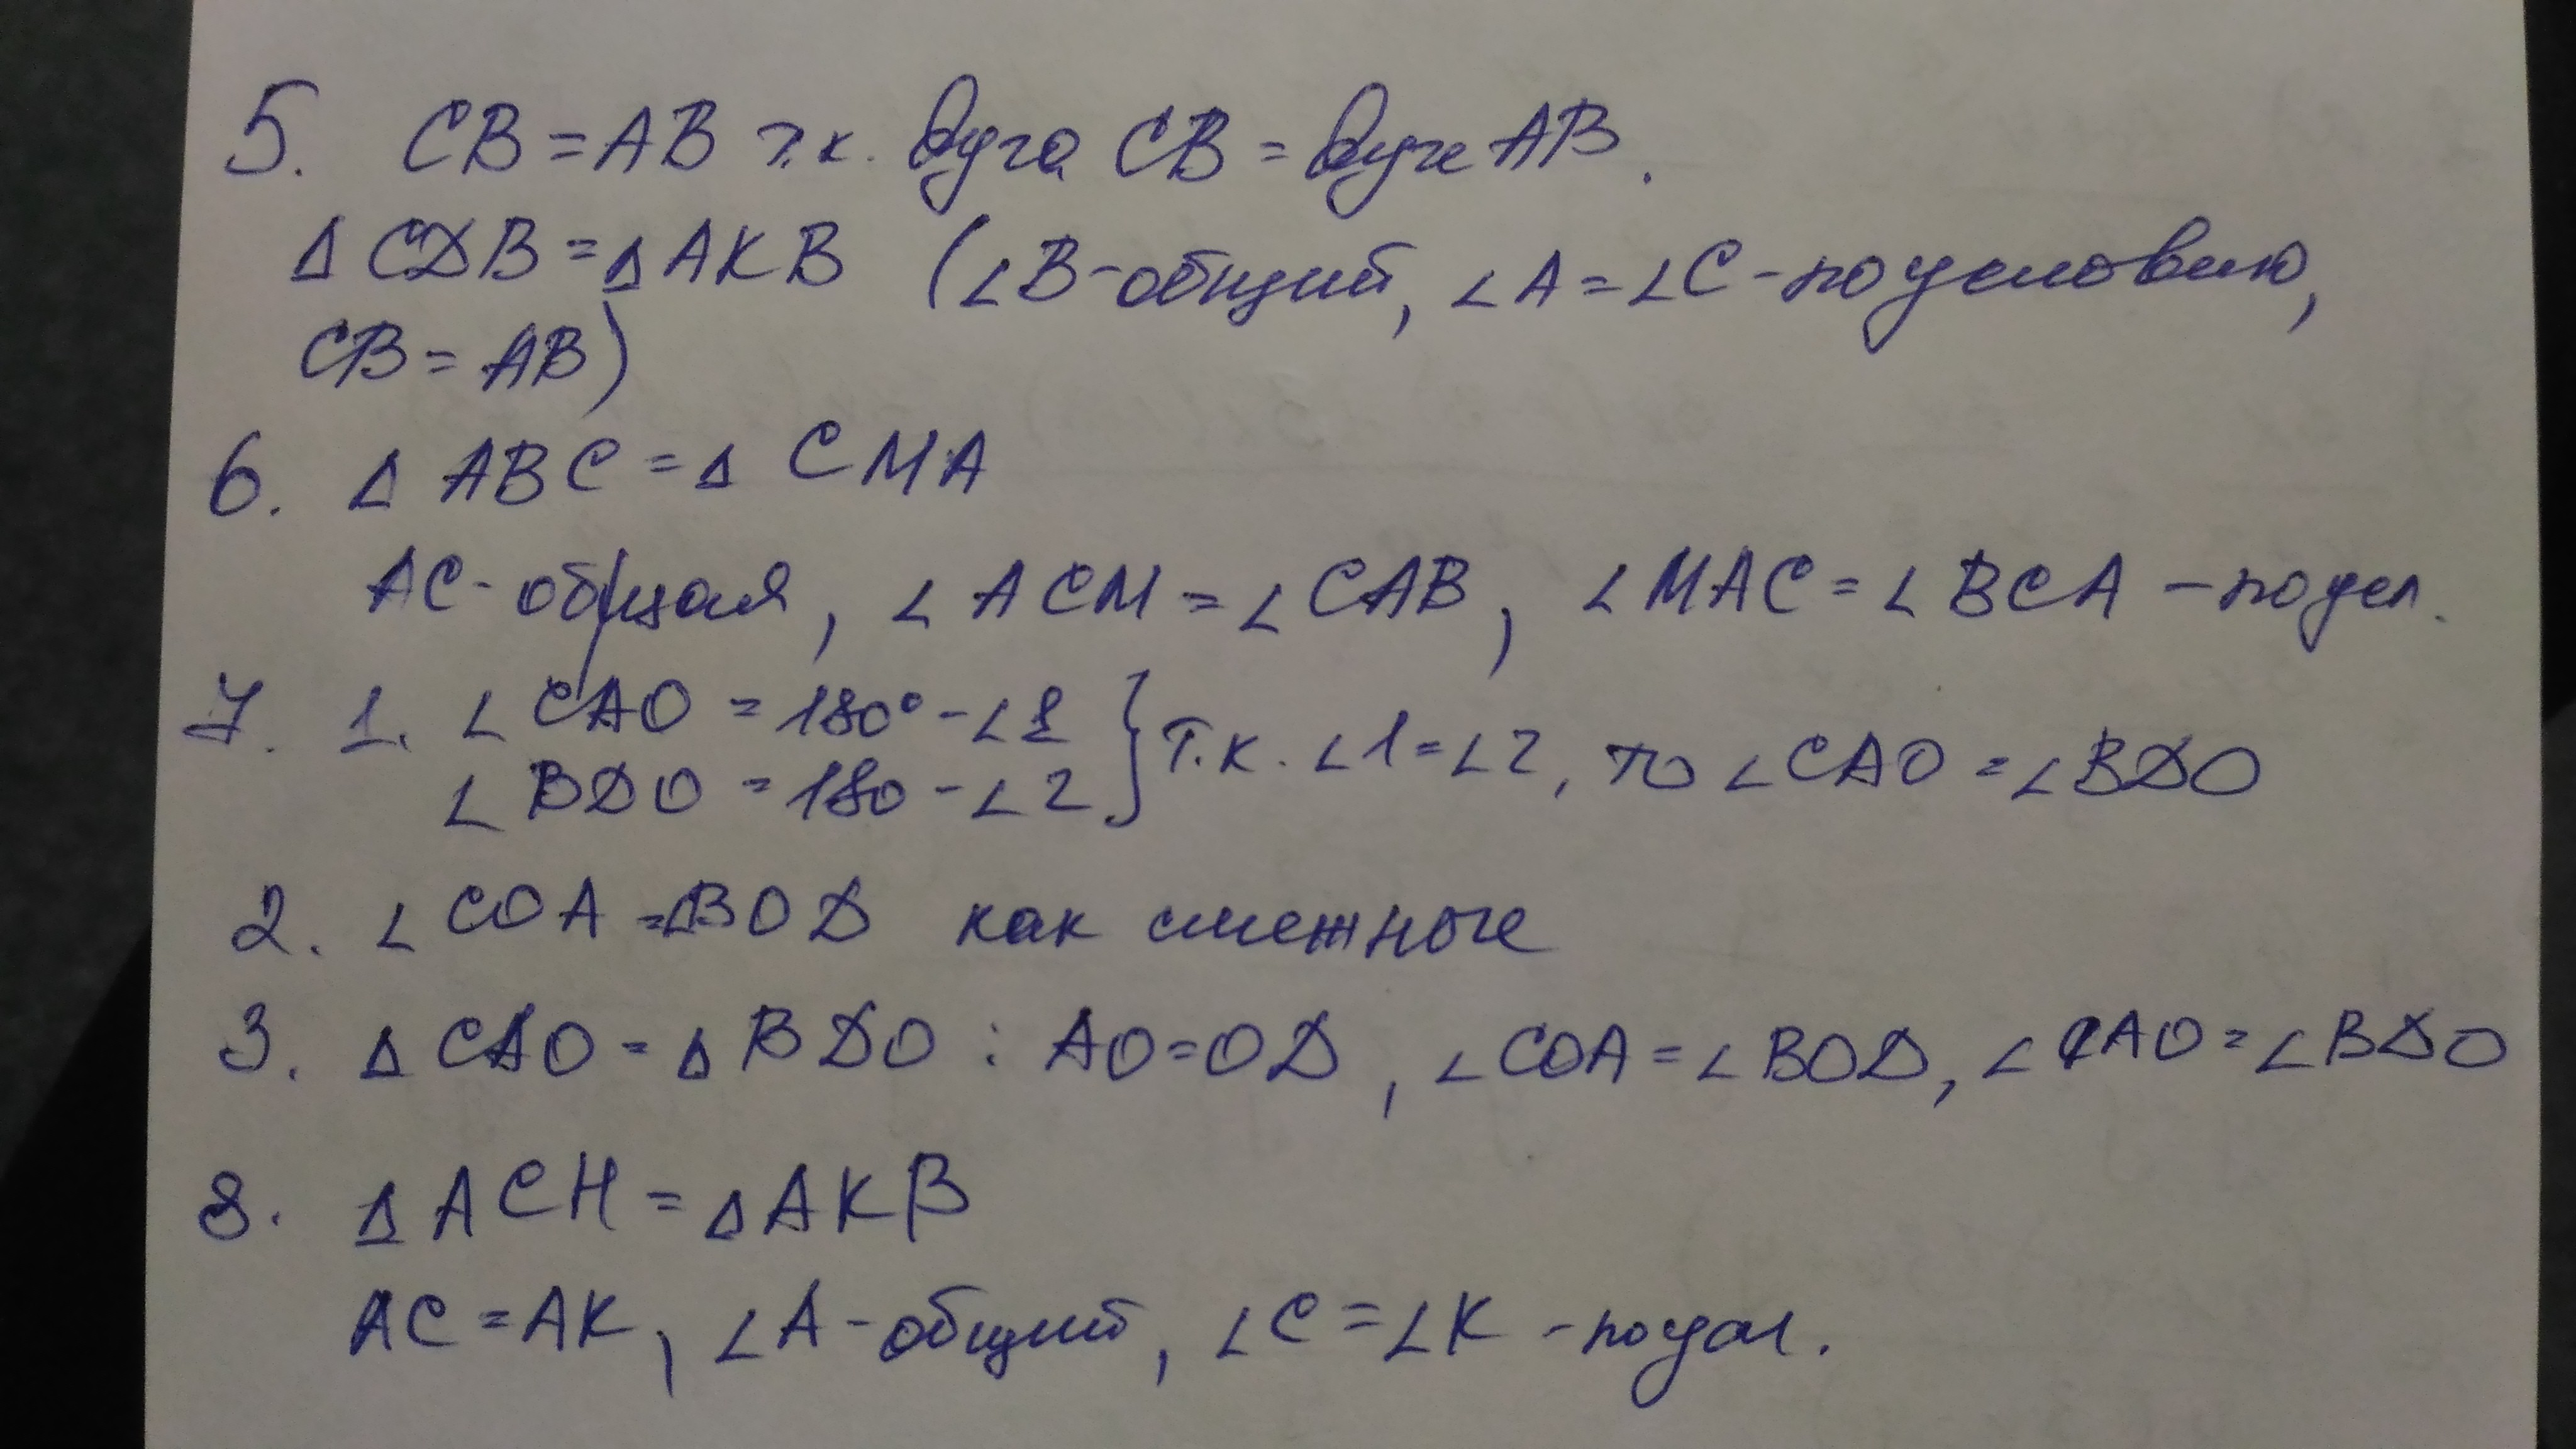 5. CB = AB т.к. дуга CB = дуге AB.
Δ CDB = Δ AKB (∠B - общий, ∠A = ∠C - по условию,
CB = AB)
6. Δ ABC = Δ CMA
AC - общая, ∠ACM = ∠CAB, ∠MAC = ∠BCA - по усл.
7. 1. ∠CAO = 180° - ∠1 } т.к. ∠1 = ∠2, то ∠CAO = ∠BDO
∠BDO = 180 - ∠2
2. ∠COA = ∠BOD как смежные
3. Δ CAO = Δ BDO : AO = OD, ∠COA = ∠BOD, ∠CAO = ∠BDO
8. Δ ACH = Δ AKB
AC = AK, ∠A - общий, ∠C = ∠K - по усл.